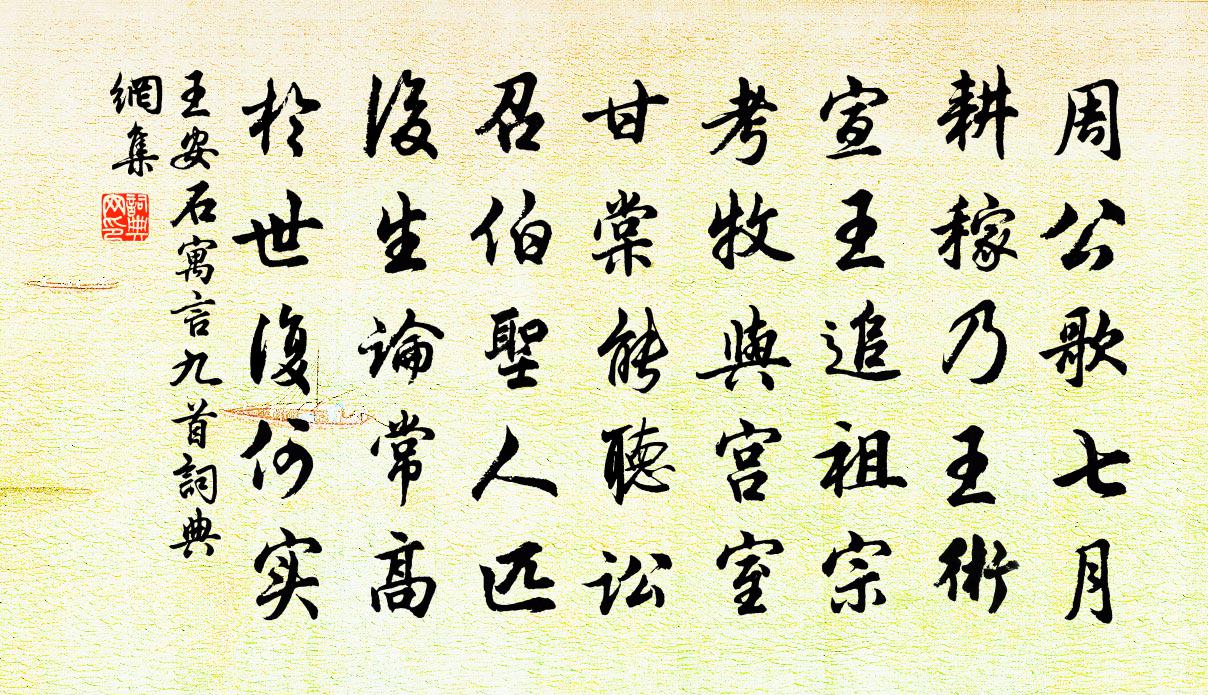 周公歌七月
耕稼乃王術
宣王追祖宗
考牧與宮室
甘棠能聽訟
召伯聖人匹
後生論常高
於世復何实
王安石寓言九首詞典
網集
詞典
网印